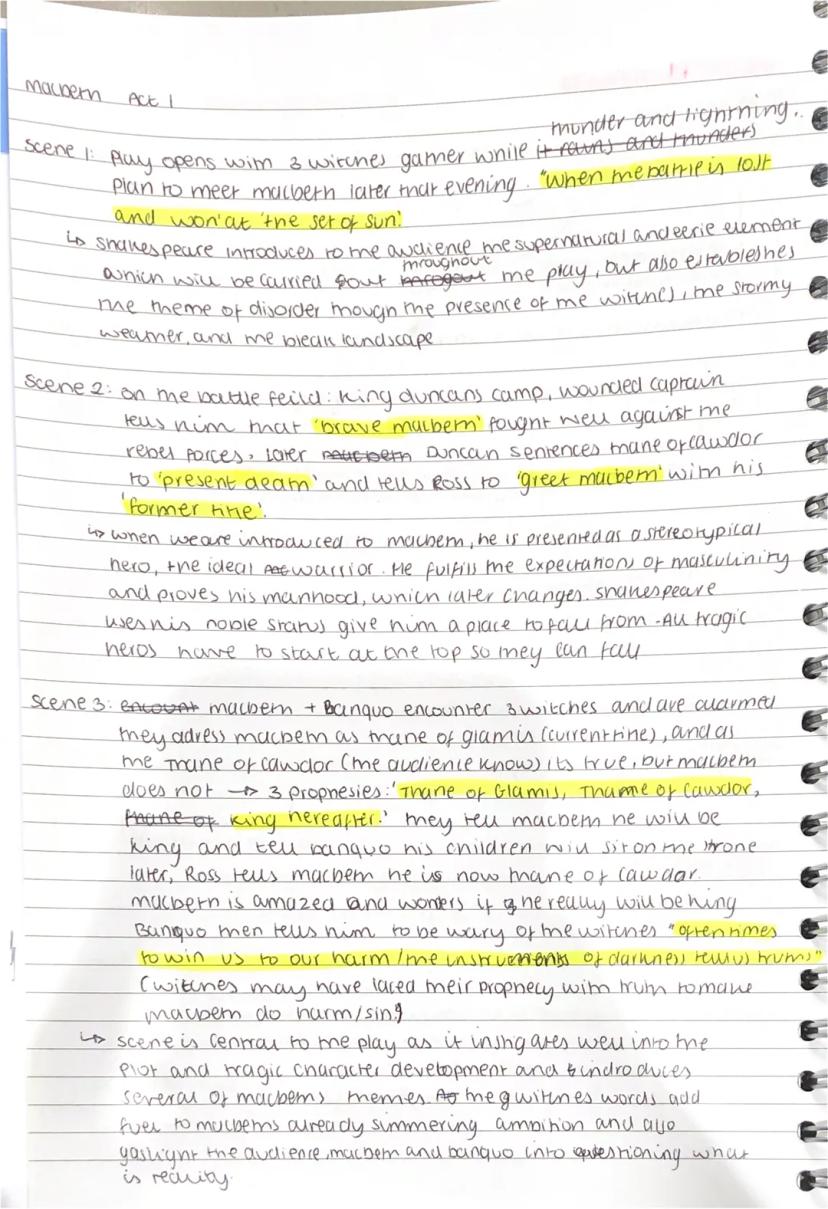 Macbeth Act 1
thunder and lightning..
Scene 1: Play opens with 3 witches gather while it rains and thunders
plan to meet macbeth later that evening. "when the battle is lost
and won' at 'the set of sun'.
↳ Shakespeare introduces to the audience the supernatural and eerie element
throughout
which will be carried out the play, but also establishes
the theme of disorder though the presence of the witches, the stormy
weather, and the bleak landscape
Scene 2: on the battle feild: King duncans camp, wounded captain
tells him that 'brave macbeth' fought well against the
rebel forces. Later macbeth Duncan sentences thane of cawdor
to 'present death' and tells Ross to 'greet macbeth' with his
'former title'.
↳ when we are introduced to macbeth, he is presented as a stereotypical
hero, the ideal warrior. He fulfills the expectations of masculinity
and proves his manhood, which later changes. Shakespeare
uses his noble status give him a place to fall from - All tragic
heros have to start at the top so they can fall
Scene 3: encount macbeth + Banquo encounter 3 witches and are alarmed
they adress macbeth as thane of glamis (current title), and as
the Thane of cawdor (the audience know) its true, but macbeth
does not → 3 prophesies: 'Thane of Glamis, Thane of Cawdor,
thane of king hereafter.' they tell macbeth he will be
king and tell banquo his children will sit on the throne
later, Ross tells macbeth he is now thane of cawdor.
macbeth is amazed and wonders if he really will be king
Banquo then tells him to be wary of the witches "oftentimes
to win us to our harm/the instruments of darkness tell us truths"
(witches may have laced their prophecy with truth to make
macbeth do harm/sin)
↳ scene is central to the play as it instigates well into the
plot and tragic character development and introduces
several of macbeths themes. the witches words add
fuel to macbeths already simmering ambition and also
gaslight the audience, macbeth and banquo into questioning what
is reality.